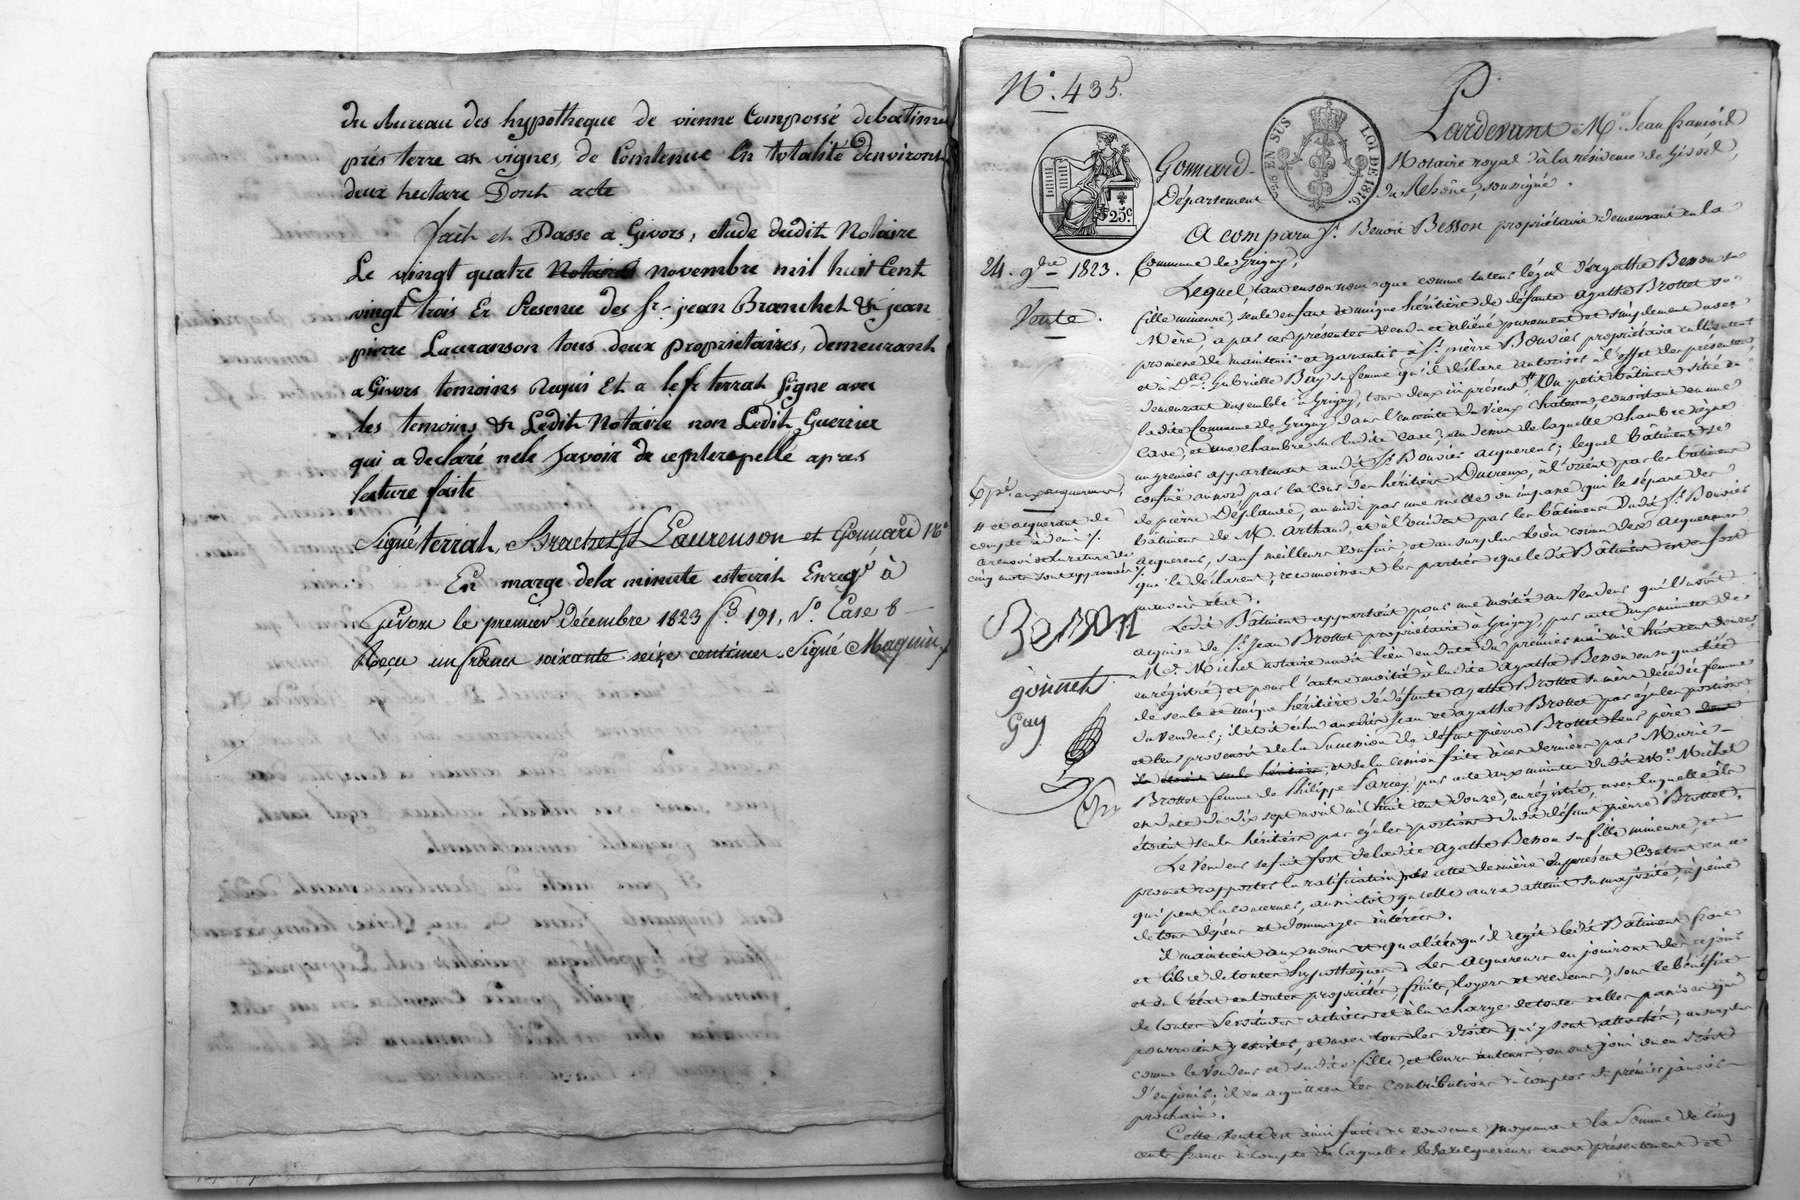 du Bureau des hypotheque de vienne Composé de batimen
prés terre et vignes, de Contenue En totalité d'environ
deux hectare Dont acte
fait et Passe a Givors, etude dudit Notaire
Le vingt quatre novembre mil huit Cent
vingt trois En Presence des Sr. jean Branchet & jean
pierre Lauranson tous deux propriétaires, demeurant
a Givors temoins Requi Et a le Sr terrat Signe avec
les temoins & Ledit Notaire non Ledit Guerrier
qui a declaré ne le Savoir de ce interpellé apres
lecture faite
Signé terrat, Branchet, Laurenson et Gonnard Nre
En marge de la minute est écrit Enregé à
Givors le premier Décembre 1823 fo 191, Vo Case 8
Reçu un franc soixante seize centimes. Signé Maguin
No. 435.
Pardevant Me Jean françois
Gonnard Notaire royal à la résidence de Givors,
Département du Rhône, soussigné.
C 25 EN SUS
LOI DE 1816
25c
A comparu Sr. Benoit Besson propriétaire demeurant en la
24. 9bre 1823.
Commune de Grigny,
Vente.
Lequel tant en son nom que comme tuteur légal d'agathe Besson sa
fille mineure, seule enfant et unique héritière de défunte agathe Brottet sa
Mère, a par ces présentes vendu et aliéné purement et simplement avec
promesse de maintenir et garantir à Sr. pierre Bouvier propriétaire cultivateur
et à Dlle Gabrielle Bay sa femme qu'il déclare autoriser à l'effet des présentes
demeurant ensemble à Grigny, tous deux ici présents Un petit bâtiment situé en
ladite Commune de Grigny dans l'enceinte du vieux Château, consistant en une
Cave, et une chambre sur ladite Cave, au dessus de laquelle chambre règne
un grenier appartenant audit Sr. Bouvier acquereur; lequel bâtiment se
confine au nord, par la Cour des héritiers Ducreux, à l'orient par les bâtimens
de pierre Desplaude, au midi par une ruelle ou impasse qui le sépare des
bâtimens de M. Arthaud, et à l'occident par les bâtimens dudit Sr. Bouvier
acquereur, sauf meilleurs confins, et au surplus bien connu des acquereurs
qui le déclarent; reconnoissant les parties que le dit Bâtiment est en fort
mauvais état.
et acquérant de
compte à demi
cinq mots sont approuvés
Besson
gonnet
Guy
Ledit Bâtiment appartient pour une moitié au Vendeur qui l'avoit
acquise de Sr. Jean Brottet propriétaire à Grigny, par acte aux minutes de
Me. Michel notaire audit lieu en date du premier mai mil huit cent douze,
enrégistré, et pour l'autre moitié à ladite agathe Besson en sa qualité
de seule et unique héritière de défunte agathe Brottet sa mère décédée femme
du Vendeur; il étoit échu auxdits Jean et agathe Brottet par égales portions,
et leur provenoit de la Succession de défunt pierre Brottet leur père
et de la cession faite à ces derniers par Marie
Brottet femme de Philippe Farcey, par acte aux minutes dudit Me. Michel
en date du dix sept avril mil huit cent douze, enrégistré, avec laquelle ils
étoient seuls héritiers par égales portions dudit défunt pierre Brottet.
Le Vendeur se fait fort de ladite agathe Besson sa fille mineure, et
promet rapporter la ratification de cette dernière du présent Contrat en ce
qui peut la concerner, aussitôt qu'elle aura atteint sa majorité, à peine
de tous dépens et dommages intérêts.
Il maintient aux noms et qualités qu'il agit ledit Bâtiment franc
et libre de toutes hypothèques. Les acquereurs en jouiront dès ce jour
et en l'état en toutes propriétés, fruits, loyers et revenus, sous le bénéfice
de toutes Servitudes actives et à la charge de toutes celles passives qui
pourroient y exister, et avec tous les droits qui y sont attachés, au surplus
comme le Vendeur et sa dite fille, et leurs auteurs, en ont joui ou eu droit
d'en jouir; ils en acquitteront les contributions à compter du premier janvier
prochain.
Cette vente est ainsi faite et convenue moyennant la Somme de Cinq
cents francs à compte de laquelle lesdits acquereurs en ont présentement et